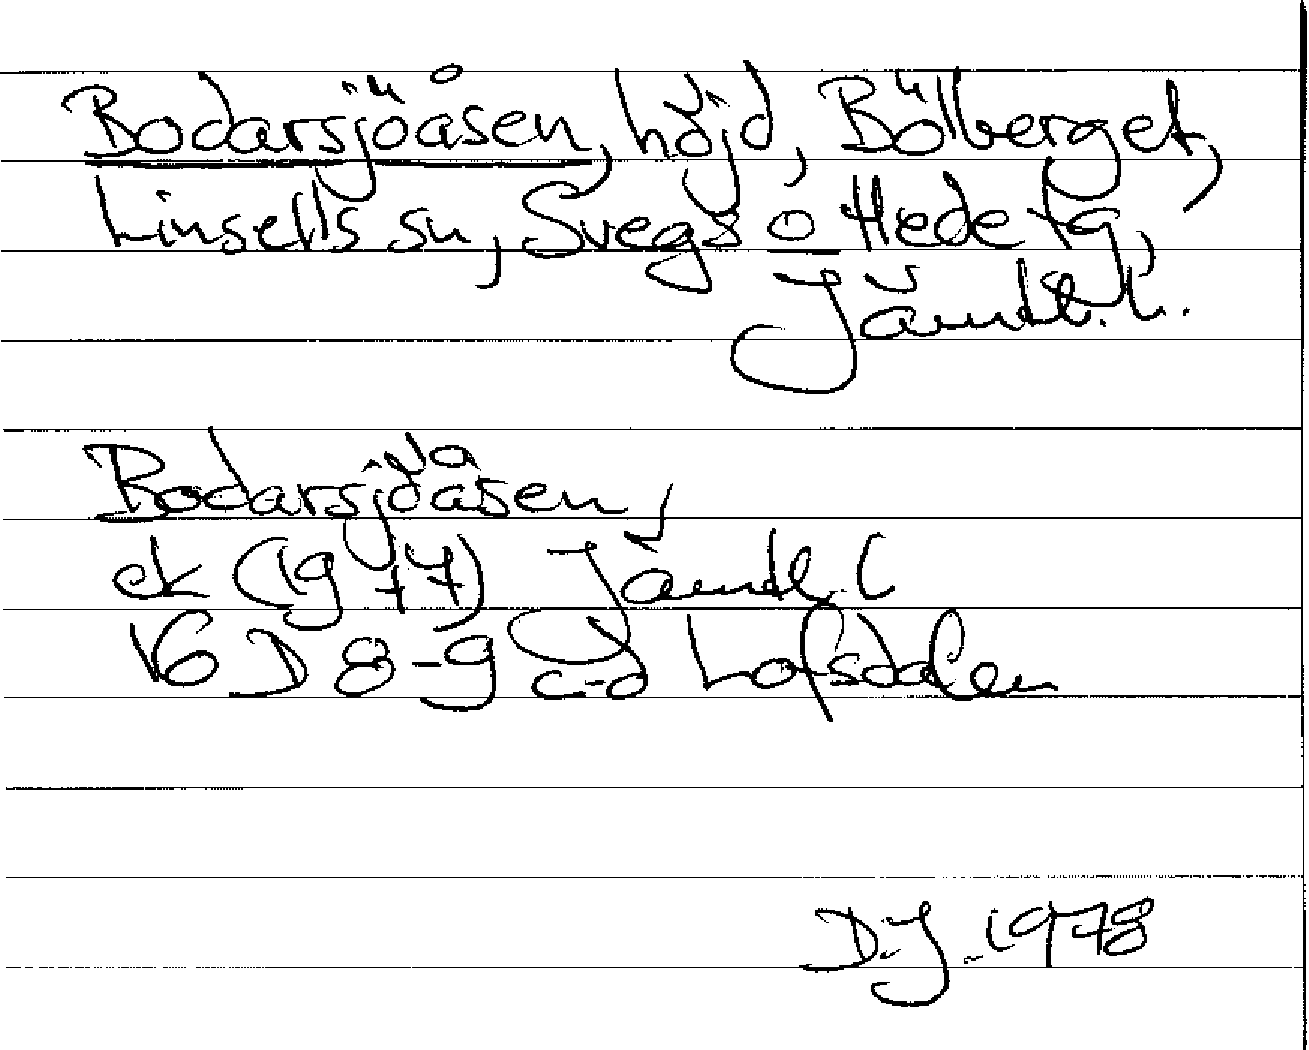 Bodarsjöåsen, höjd, Bölberget,
Linsells sn, Svegs o Hede tg,
Jämtl. l.
Bodarsjöåsen,
ek (1977) Jämtl. l
V6 D 8-9 c-d Lofsdalen
D.J. 1978